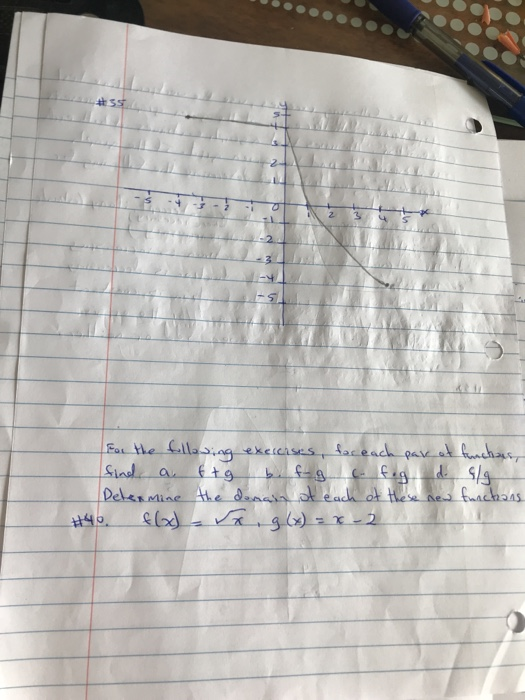 #35
y
5
4
3
2
1
-5 -4 -3 -2 -1 0 1 2 3 4 5 x
-1
-2
-3
-4
-5
For the following exercises, for each pair of functions,
find a. f+g b. f-g c. f•g d. f/g
Determine the domain of each of these new functions
#40. f(x) = √x, g(x) = x - 2